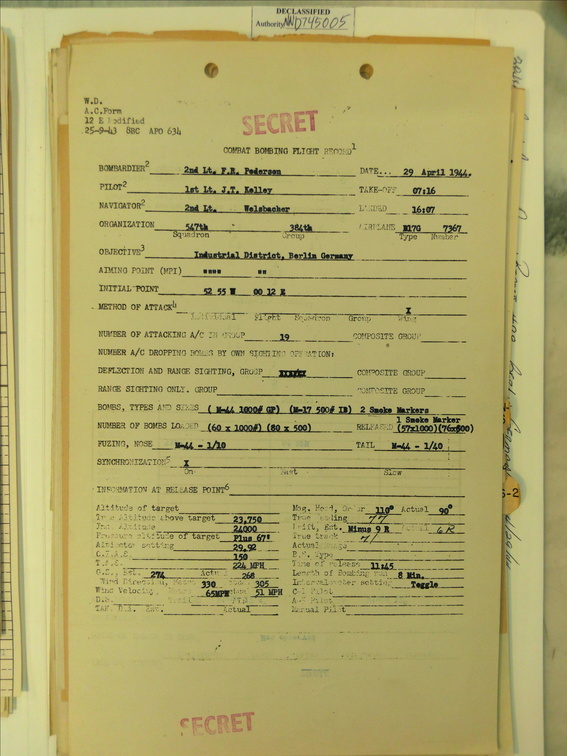 DECLASSIFIED
Authority NND745005
W.D.
A.C.Form
12 E Modified
25-9-43 8BC APO 634
SECRET
COMBAT BOMBING FLIGHT RECORD1
BOMBARDIER2 2nd Lt. F.R. Pedersen DATE... 29 April 1944.
PILOT2 1st Lt. J.T. Kelley TAKE-OFF 07:16
NAVIGATOR2 2nd Lt. Welsbacher LANDED 16:07
ORGANIZATION 547th 384th AIRPLANE B17G 7367
Squadron Group Type Number
OBJECTIVE3 Industrial District, Berlin Germany
AIMING POINT (MPI) """" ""
INITIAL POINT 52 55 N 00 12 E
METHOD OF ATTACK4 X
Individual Flight Squadron Group Wing
NUMBER OF ATTACKING A/C IN GROUP 19 COMPOSITE GROUP
NUMBER A/C DROPPING BOMBS BY OWN SIGHTING OPERATION:
DEFLECTION AND RANGE SIGHTING, GROUP COMPOSITE GROUP
RANGE SIGHTING ONLY. GROUP COMPOSITE GROUP
BOMBS, TYPES AND SIZES ( M-44 1000# GP) (M-17 500# IB) 2 Smoke Markers
1 Smoke Marker
NUMBER OF BOMBS LOADED (60 x 1000#) (80 x 500) RELEASED (57x1000)(76x500)
FUZING, NOSE M-44 - 1/10 TAIL M-44 - 1/40
SYNCHRONIZATION5 X
On Fast Slow
INFORMATION AT RELEASE POINT6
Altitude of target Mag. Head, Order 110° Actual 90°
True Altitude above target 23,750 True Heading 77
Ind. Altitude 24000 Drift, Est. Minus 9 R Actual 6R
Pressure altitude of target Plus 67' True track
Altimeter setting 29.92 Actual Range
C.I.A.S. 150 B.S. Type
T.A.S. 224 MPH Time of release 11:45
G.S. Est. 274 Actual 268 Length of Bombing run 8 Min.
Wind Direction, Metro 330 305 Intervalometer setting Toggle
Wind Velocity, Metro 65MPH Actual 51 MPH C-1 Pilot
D.S. A-5 Pilot
TAN. D.A. Est. Actual Manual Pilot
SECRET